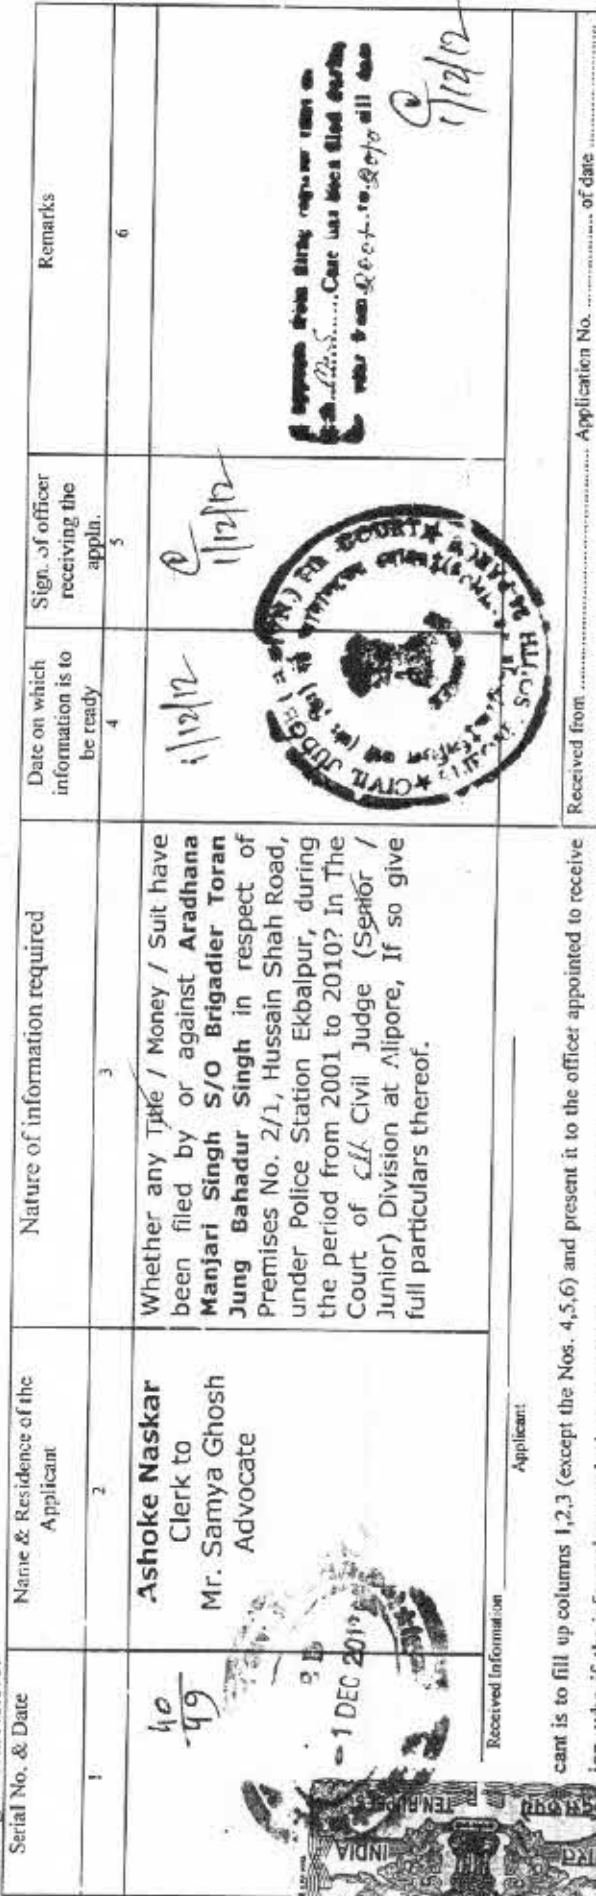 Serial No. & Date
Name & Residence of the
Applicant
Nature of information required
Date on which
information is to
be ready
Sign. of officer
receiving the
appln.
Remarks
1
2
3
4
5
6
40
49
Ashoke Naskar
Clerk to
Mr. Samya Ghosh
Advocate
Whether any Title / Money / Suit have
been filed by or against Aradhana
Manjari Singh S/O Brigadier Toran
Jung Bahadur Singh in respect of
Premises No. 2/1, Hussain Shah Road,
under Police Station Ekbalpur, during
the period from 2001 to 2010? In The
Court of Civil Judge (Senior /
Junior) Division at Alipore, If so give
full particulars thereof.
1/12/12
1/12/12
appears from
Case has been filed during
from 2001 to 2010 till
1/12/12
CIVIL JUDGE COURT
- 1 DEC 201
TEN RUPEES
INDIA
Received Information
Applicant
Received from Application No. of date
cant is to fill up columns 1,2,3 (except the Nos. 4,5,6) and present it to the officer appointed to receive